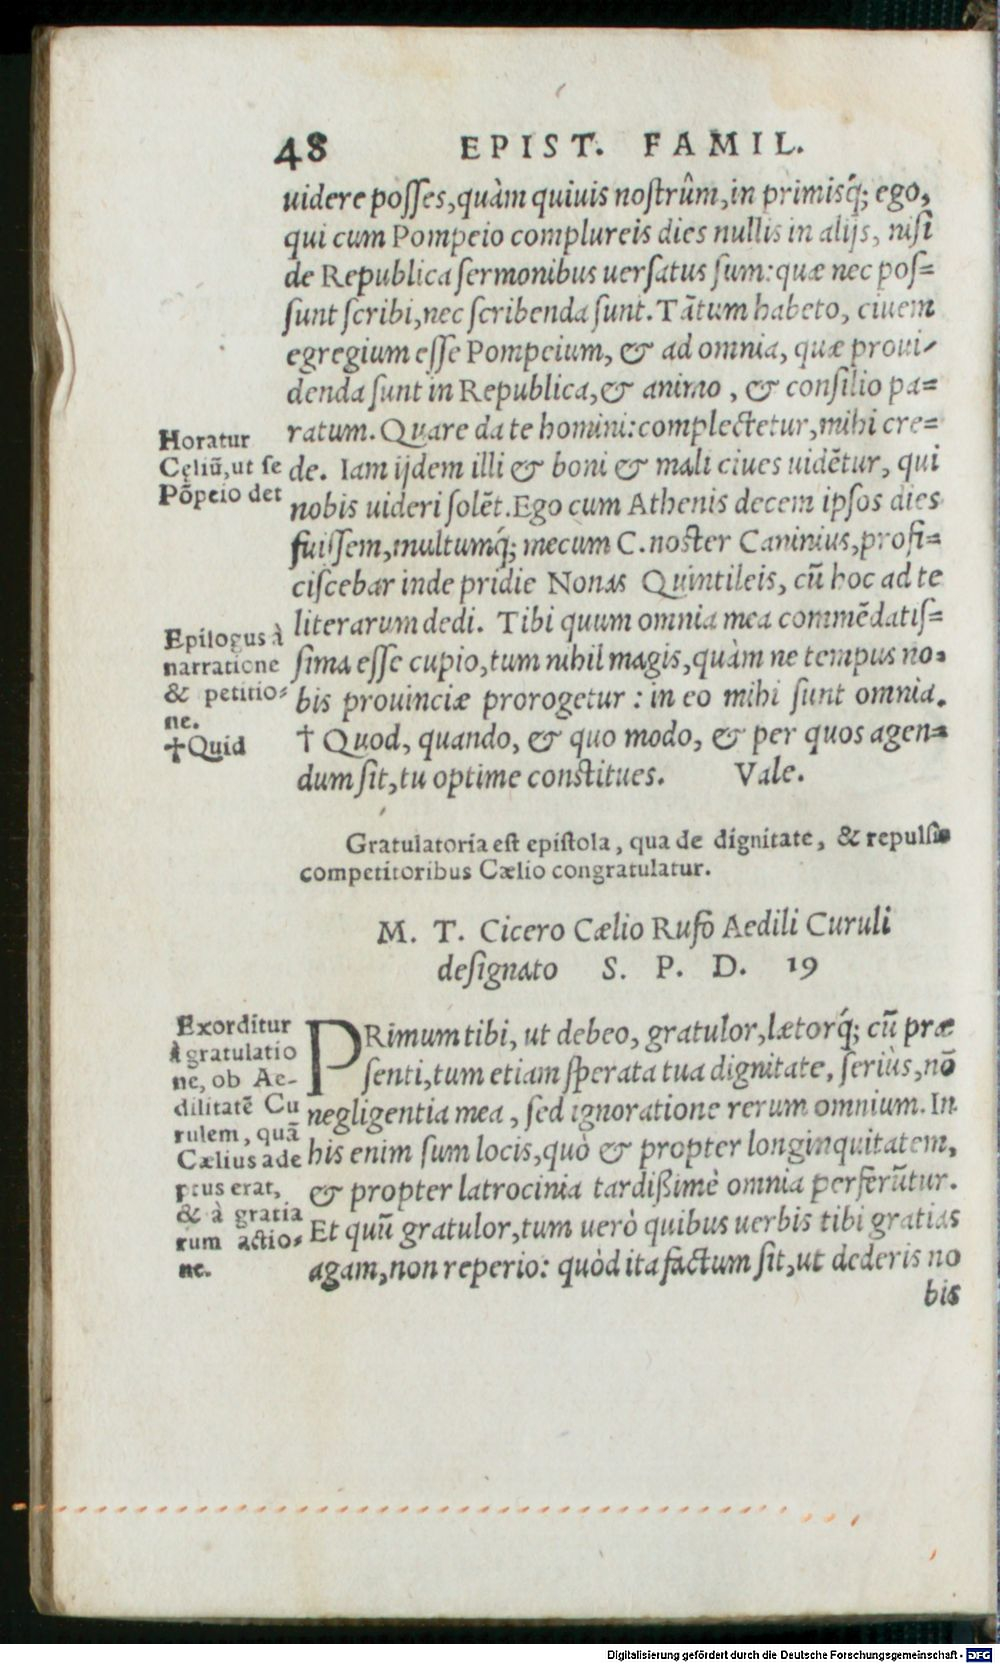 48 EPIST. FAMIL.
uidere posſes, quàm quiuis noſtrûm, in primisq́; ego,
qui cum Pompeio complureis dies nullis in alijs, niſi
de Republica ſermonibus uerſatus ſum: quæ nec poſ=
ſunt ſcribi, nec ſcribenda ſunt. Tãtum habeto, ciuem
egregium eſſe Pompeium, & ad omnia, quæ proui-
denda ſunt in Republica, & animo, & conſilio pa=
ratum. Quare da te homini: complectetur, mihi cre=
de. Iam ijdem illi & boni & mali ciues uidẽtur, qui
nobis uideri ſolẽt. Ego cum Athenis decem ipſos dies
fuiſſem, multumq́; mecum C. noſter Caninius, profi=
ciſcebar inde pridie Nonas Quintileis, cũ hoc ad te
literarum dedi. Tibi quum omnia mea commẽdatiſ=
ſima eſſe cupio, tum nihil magis, quàm ne tempus no=
bis prouinciæ prorogetur: in eo mihi ſunt omnia.
† Quod, quando, & quo modo, & per quos agen=
dum ſit, tu optime conſtitues. Vale.
Horatur
Cęliũ, ut ſe
Põpeio det
Epilogus à
narratione
& petitio-
ne.
†Quid
Gratulatoria eſt epiſtola, qua de dignitate, & repulſis
competitoribus Cælio congratulatur.
M. T. Cicero Cælio Rufo Aedili Curuli
deſignato S. P. D. 19
PRimum tibi, ut debeo, gratulor, lætorq́; cũ præ
ſenti, tum etiam ſperata tua dignitate, ſeriùs, nõ
negligentia mea, ſed ignoratione rerum omnium. In
his enim ſum locis, quò & propter longinquitatem,
& propter latrocinia tardißimè omnia perferũtur.
Et quũ gratulor, tum uerò quibus uerbis tibi gratias
agam, non reperio: quòd ita factum ſit, ut dederis no
bis
Exorditur
à gratulatio
ne, ob Ae-
dilitatẽ Cu
rulem, quã
Cælius ade
ptus erat,
& à gratia
rum actio-
ne.
Digitalisierung gefördert durch die Deutsche Forschungsgemeinschaft - DFG